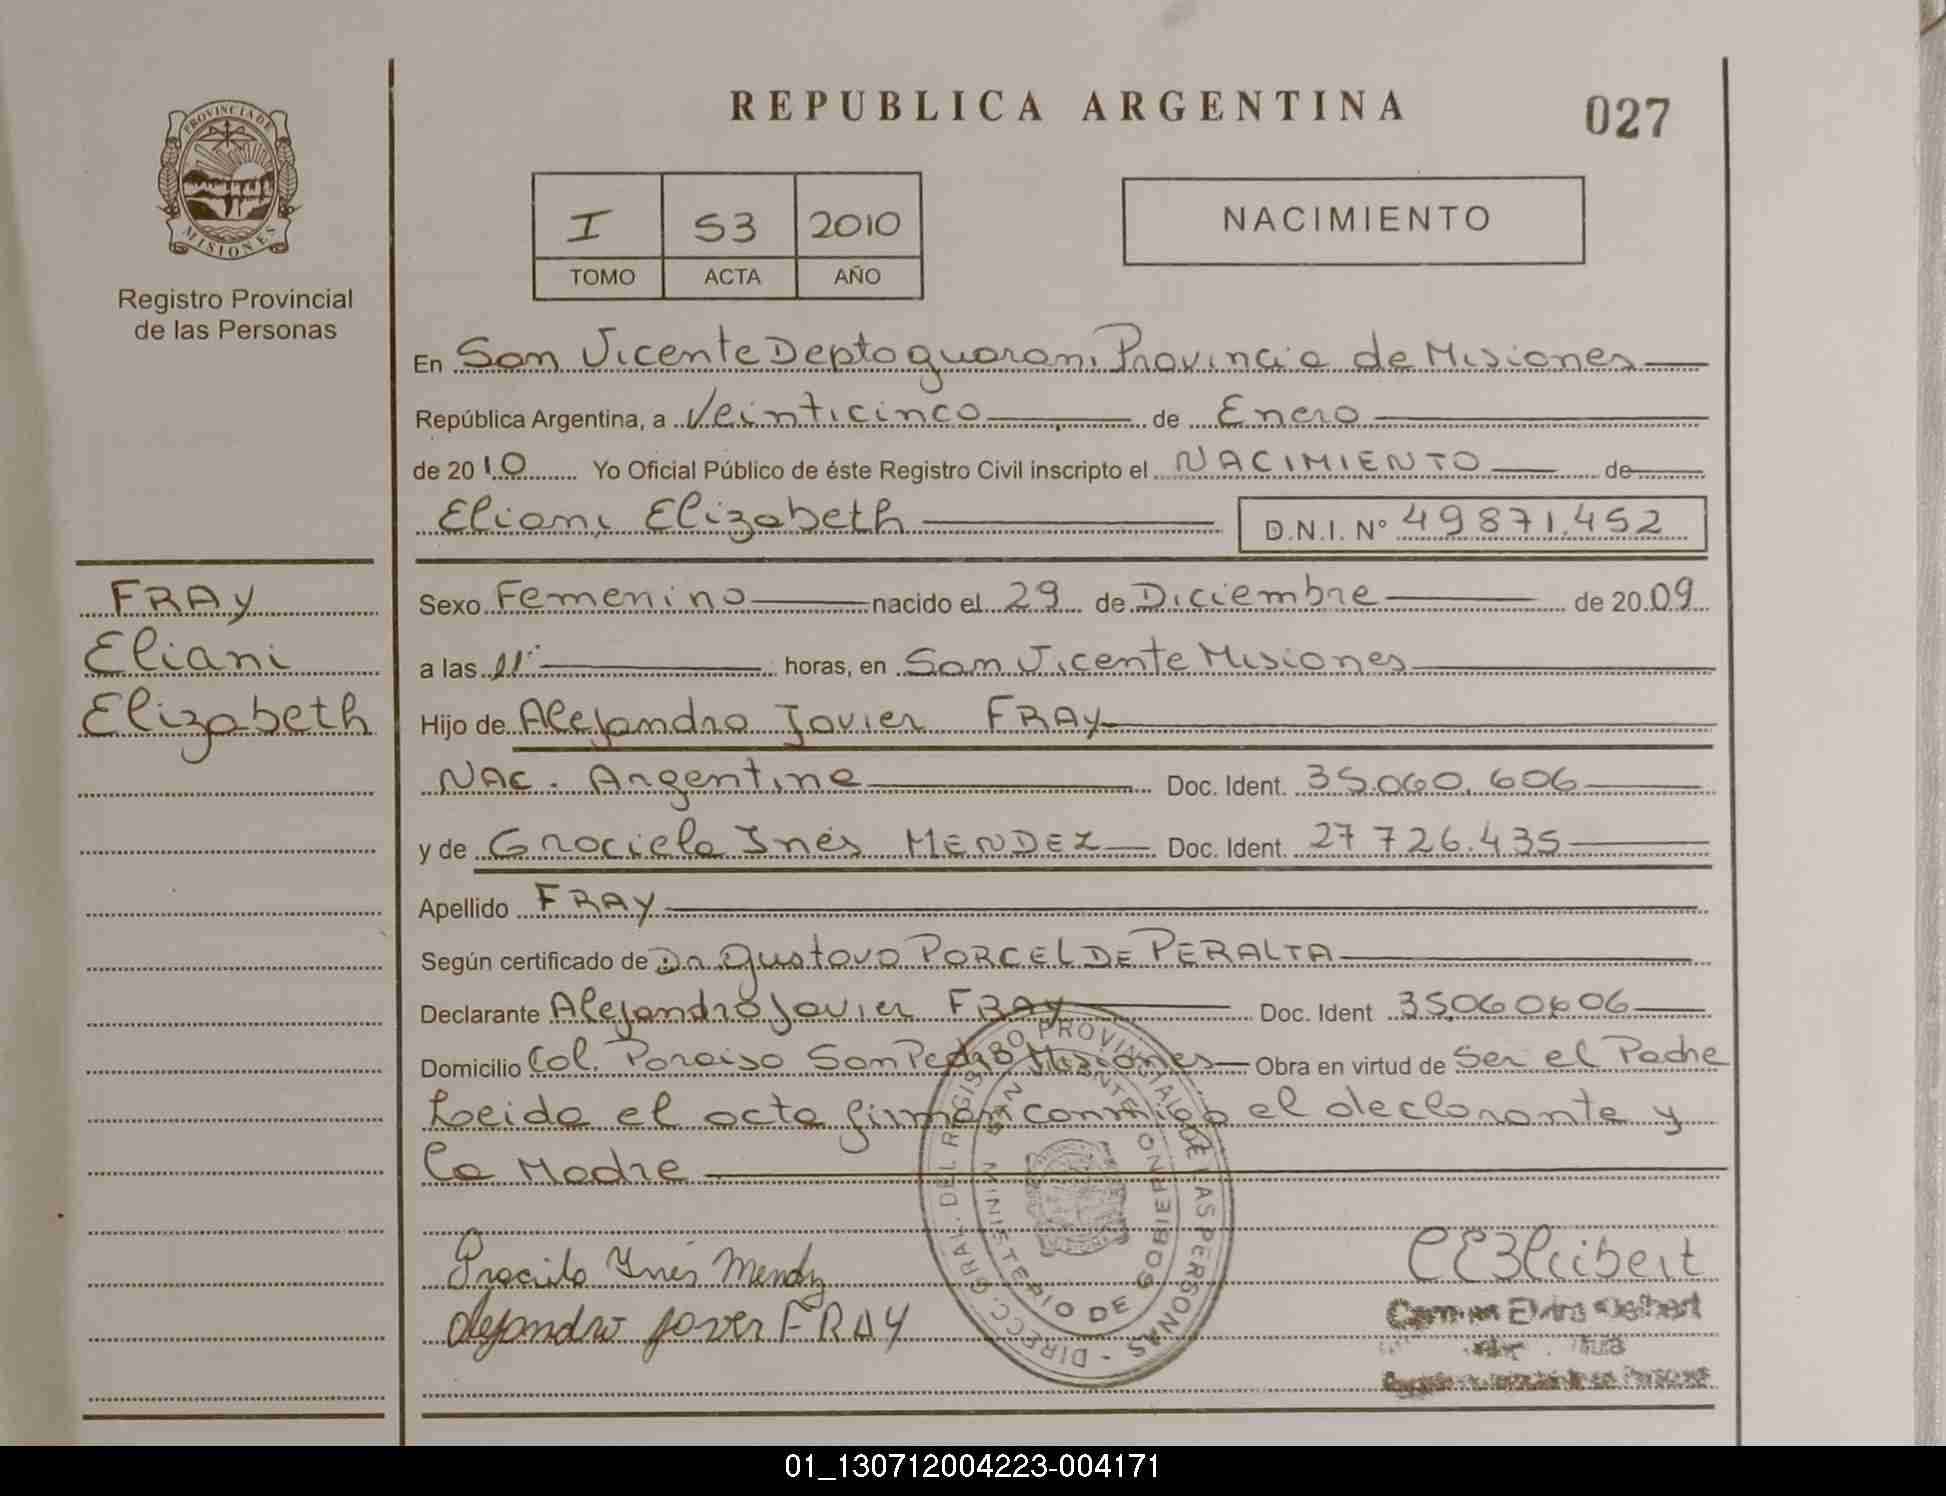 PROVINCIA DE
MISIONES
Registro Provincial
de las Personas
REPUBLICA ARGENTINA
027
I 53 2010
TOMO ACTA AÑO
NACIMIENTO
En San Vicente Depto guarani Provincia de Misiones
República Argentina, a Veinticinco de Enero
de 2010 Yo Oficial Público de éste Registro Civil inscripto el NACIMIENTO de
Eliani Elizabeth D.N.I. Nº 49871.452
FRAY
Eliani
Elizabeth
Sexo Femenino nacido el 29 de Diciembre de 2009
a las 11 horas, en San Vicente Misiones
Hijo de Alejandro Javier FRAY
NAC. Argentina Doc. Ident. 35.060.606
y de Graciela Inés MENDEZ Doc. Ident. 27 726.435
Apellido FRAY
Según certificado de Dr gustavo PORCEL DE PERALTA
Declarante Alejandro Javier FRAY Doc. Ident 35.060.606
Domicilio Col. Paraiso San Pedro Misiones Obra en virtud de Ser el Padre
Leida el acta firman conmigo el declarante y
la Madre
DIRECC. GRAL. DEL REGISTRO PROVINCIAL DE LAS PERSONAS -
MINISTERIO DE GOBIERNO
SAN VICENTE
Graciela Inés Mendez
Alejandro Javier FRAY
Carmen Elvira
01_130712004223-004171